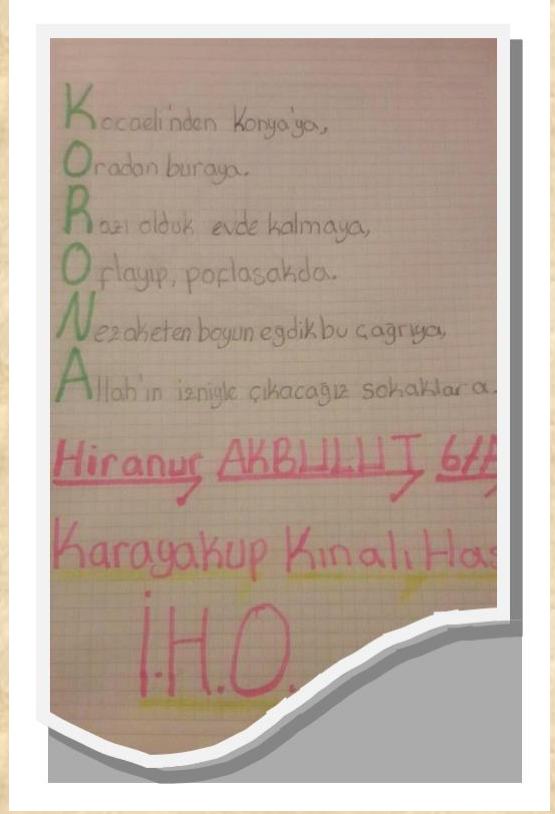 Kocaeli'nden Konya'ya,
Oradan buraya.
Razı olduk evde kalmaya,
Oflayıp, poflasakda.
Nezaketen boyun eğdik bu çağrıya,
Allah'ın izniyle çıkacağız sokaklara.
Hiranur AKBULUT 6/A
Karayakup Kınalı Has
İ.H.O.